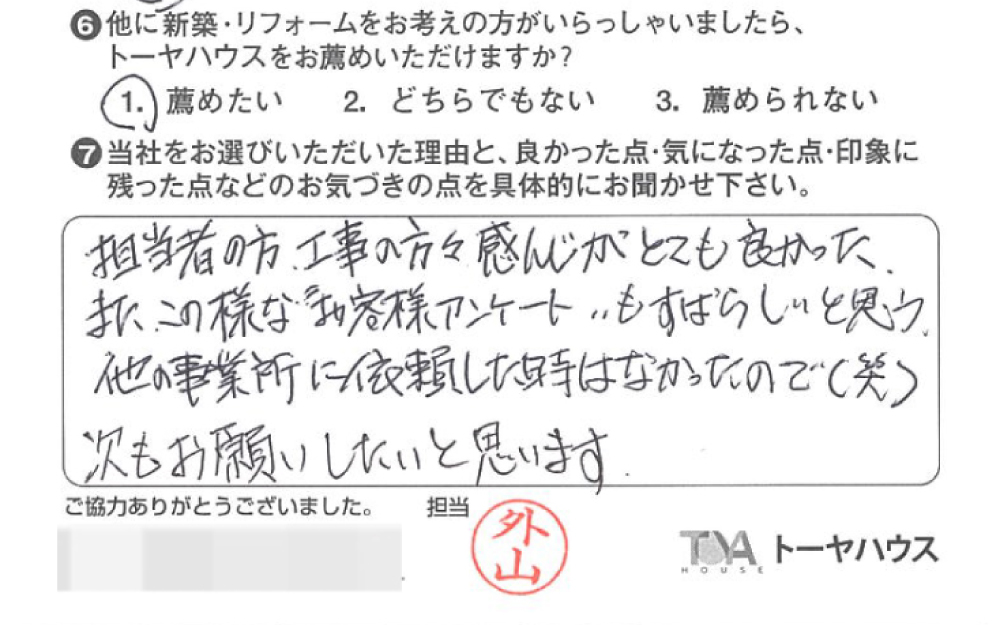 ❻他に新築・リフォームをお考えの方がいらっしゃいましたら、
トーヤハウスをお薦めいただけますか?
1. 薦めたい 2. どちらでもない 3. 薦められない
❼当社をお選びいただいた理由と、良かった点・気になった点・印象に
残った点などのお気づきの点を具体的にお聞かせ下さい。
担当者の方、工事の方々感んじがとても良かった、
また、この様な"お客様アンケート"もすばらしいと思う。
他の事業所に依頼した時はなかったので(笑)
次もお願いしたいと思います.
ご協力ありがとうございました。 担当
外山
TOYA HOUSE トーヤハウス